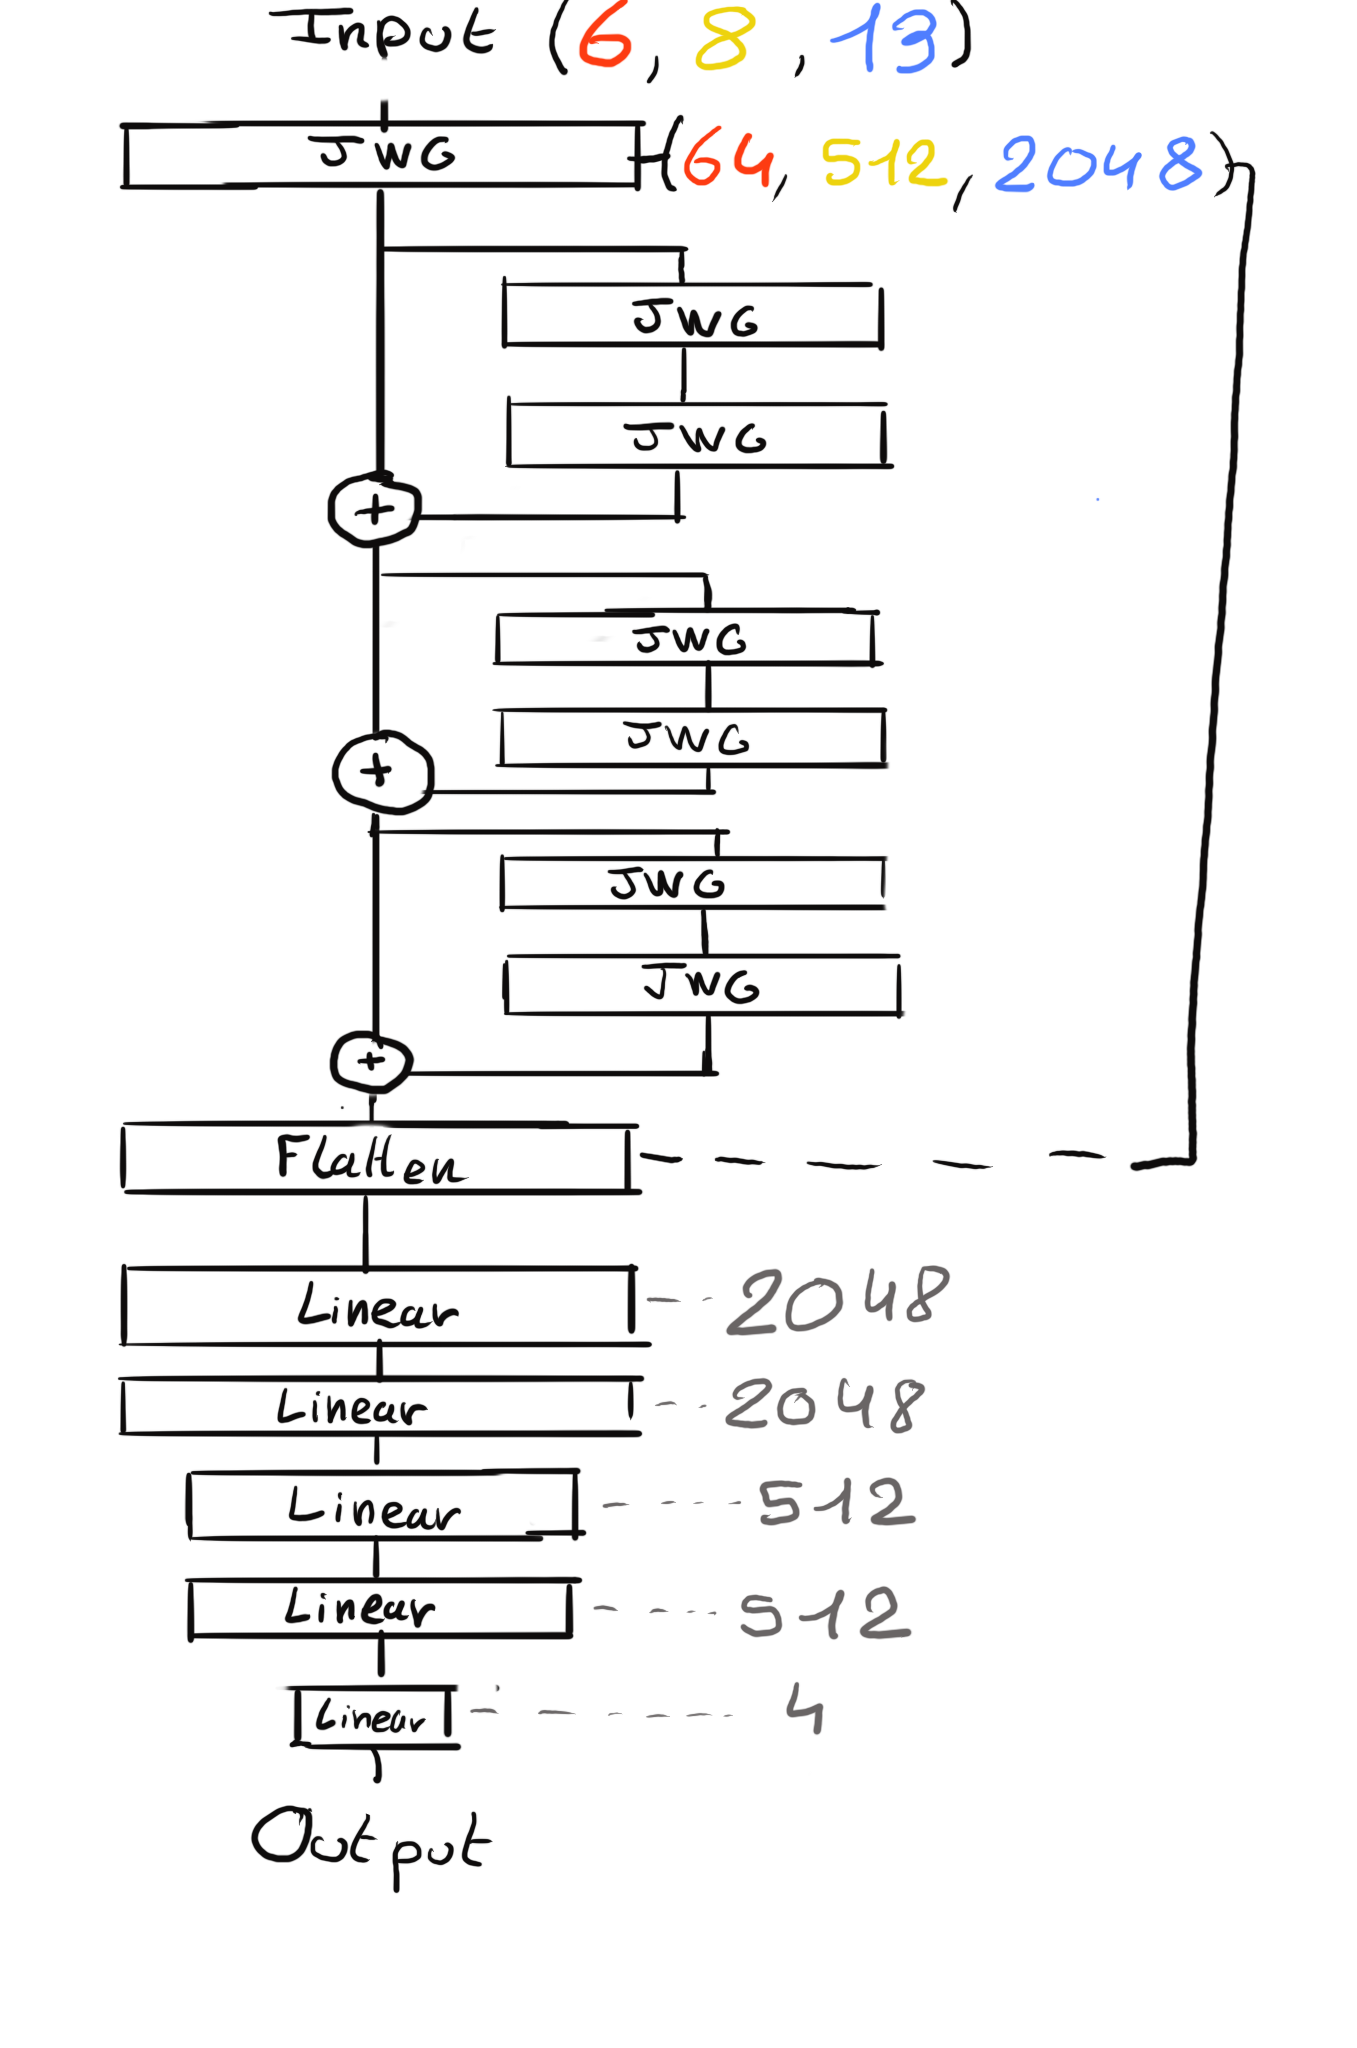 Input (6, 8, 13)
JWG (64, 512, 2048)
JWG
JWG
+
JWG
JWG
+
JWG
JWG
+
Flatten
Linear 2048
Linear 2048
Linear 512
Linear 512
Linear 4
Output